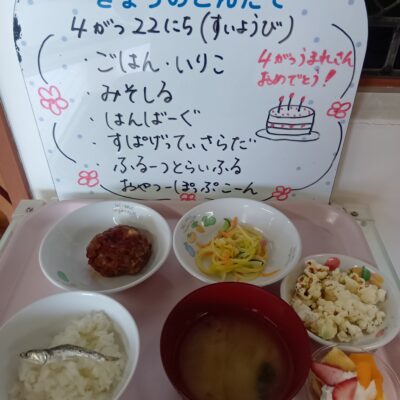 きょうのこんだて
4がつ22にち(すいようび)
・ごはん・いりこ
・みそしる
・はんばーぐ
・すぱげってぃさらだ
・ふるーつとらいふる
おやつ―ぽっぷこーん
4がつうまれさん
おめでとう!